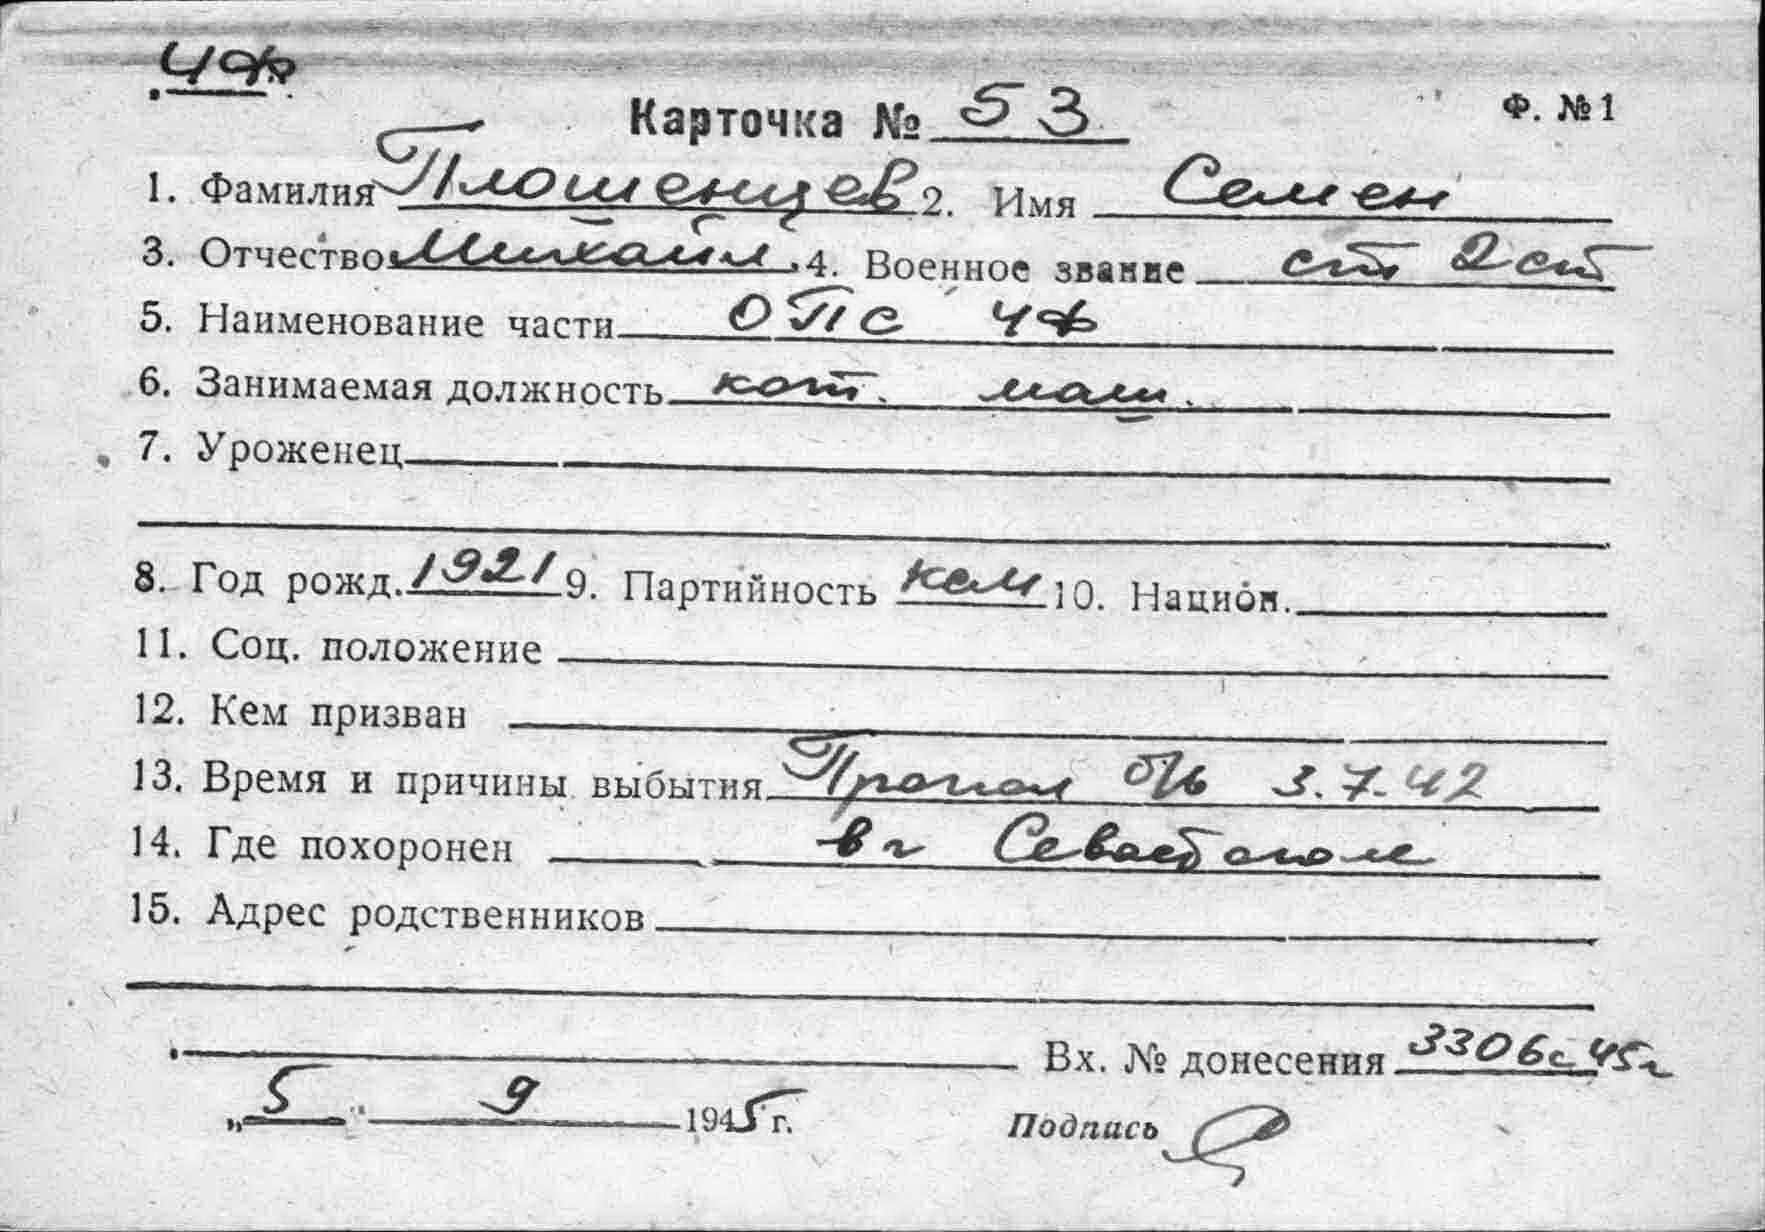 ЧФ
Карточка № 53 Ф. № 1
1. Фамилия Плошенцев 2. Имя Семен
3. Отчество Михайл. 4. Военное звание ст 2 ст
5. Наименование части ОПС ЧФ
6. Занимаемая должность кот. маш.
7. Уроженец
8. Год рожд. 1921 9. Партийность ксм 10. Национ.
11. Соц. положение
12. Кем призван
13. Время и причины выбытия Пропал б/в 3.7.42
14. Где похоронен в г Севастополе
15. Адрес родственников
Вх. № донесения 3306с 45г
„5" 9 1945 г. Подпись